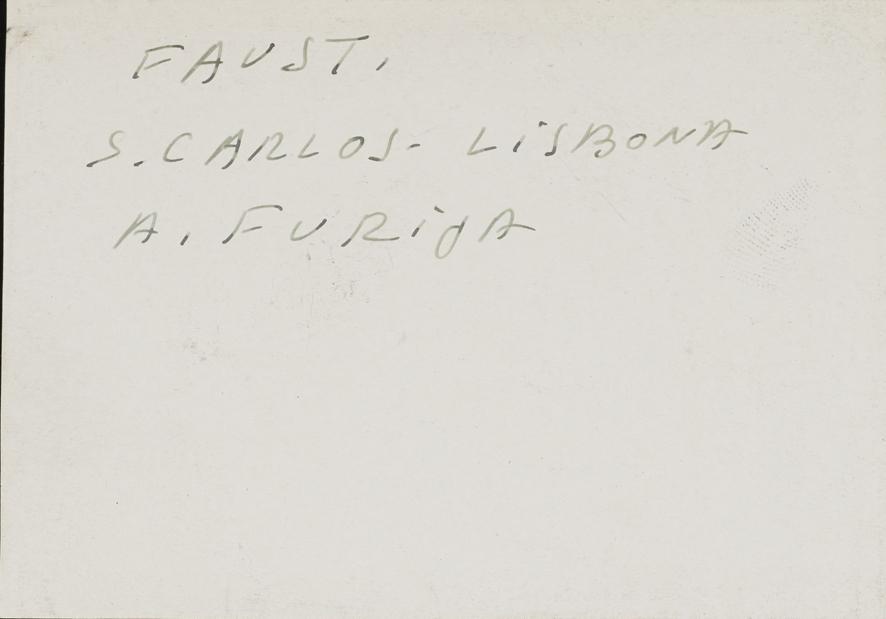 FAUST.
S. CARLOS - LiSBONA
A. FURigA